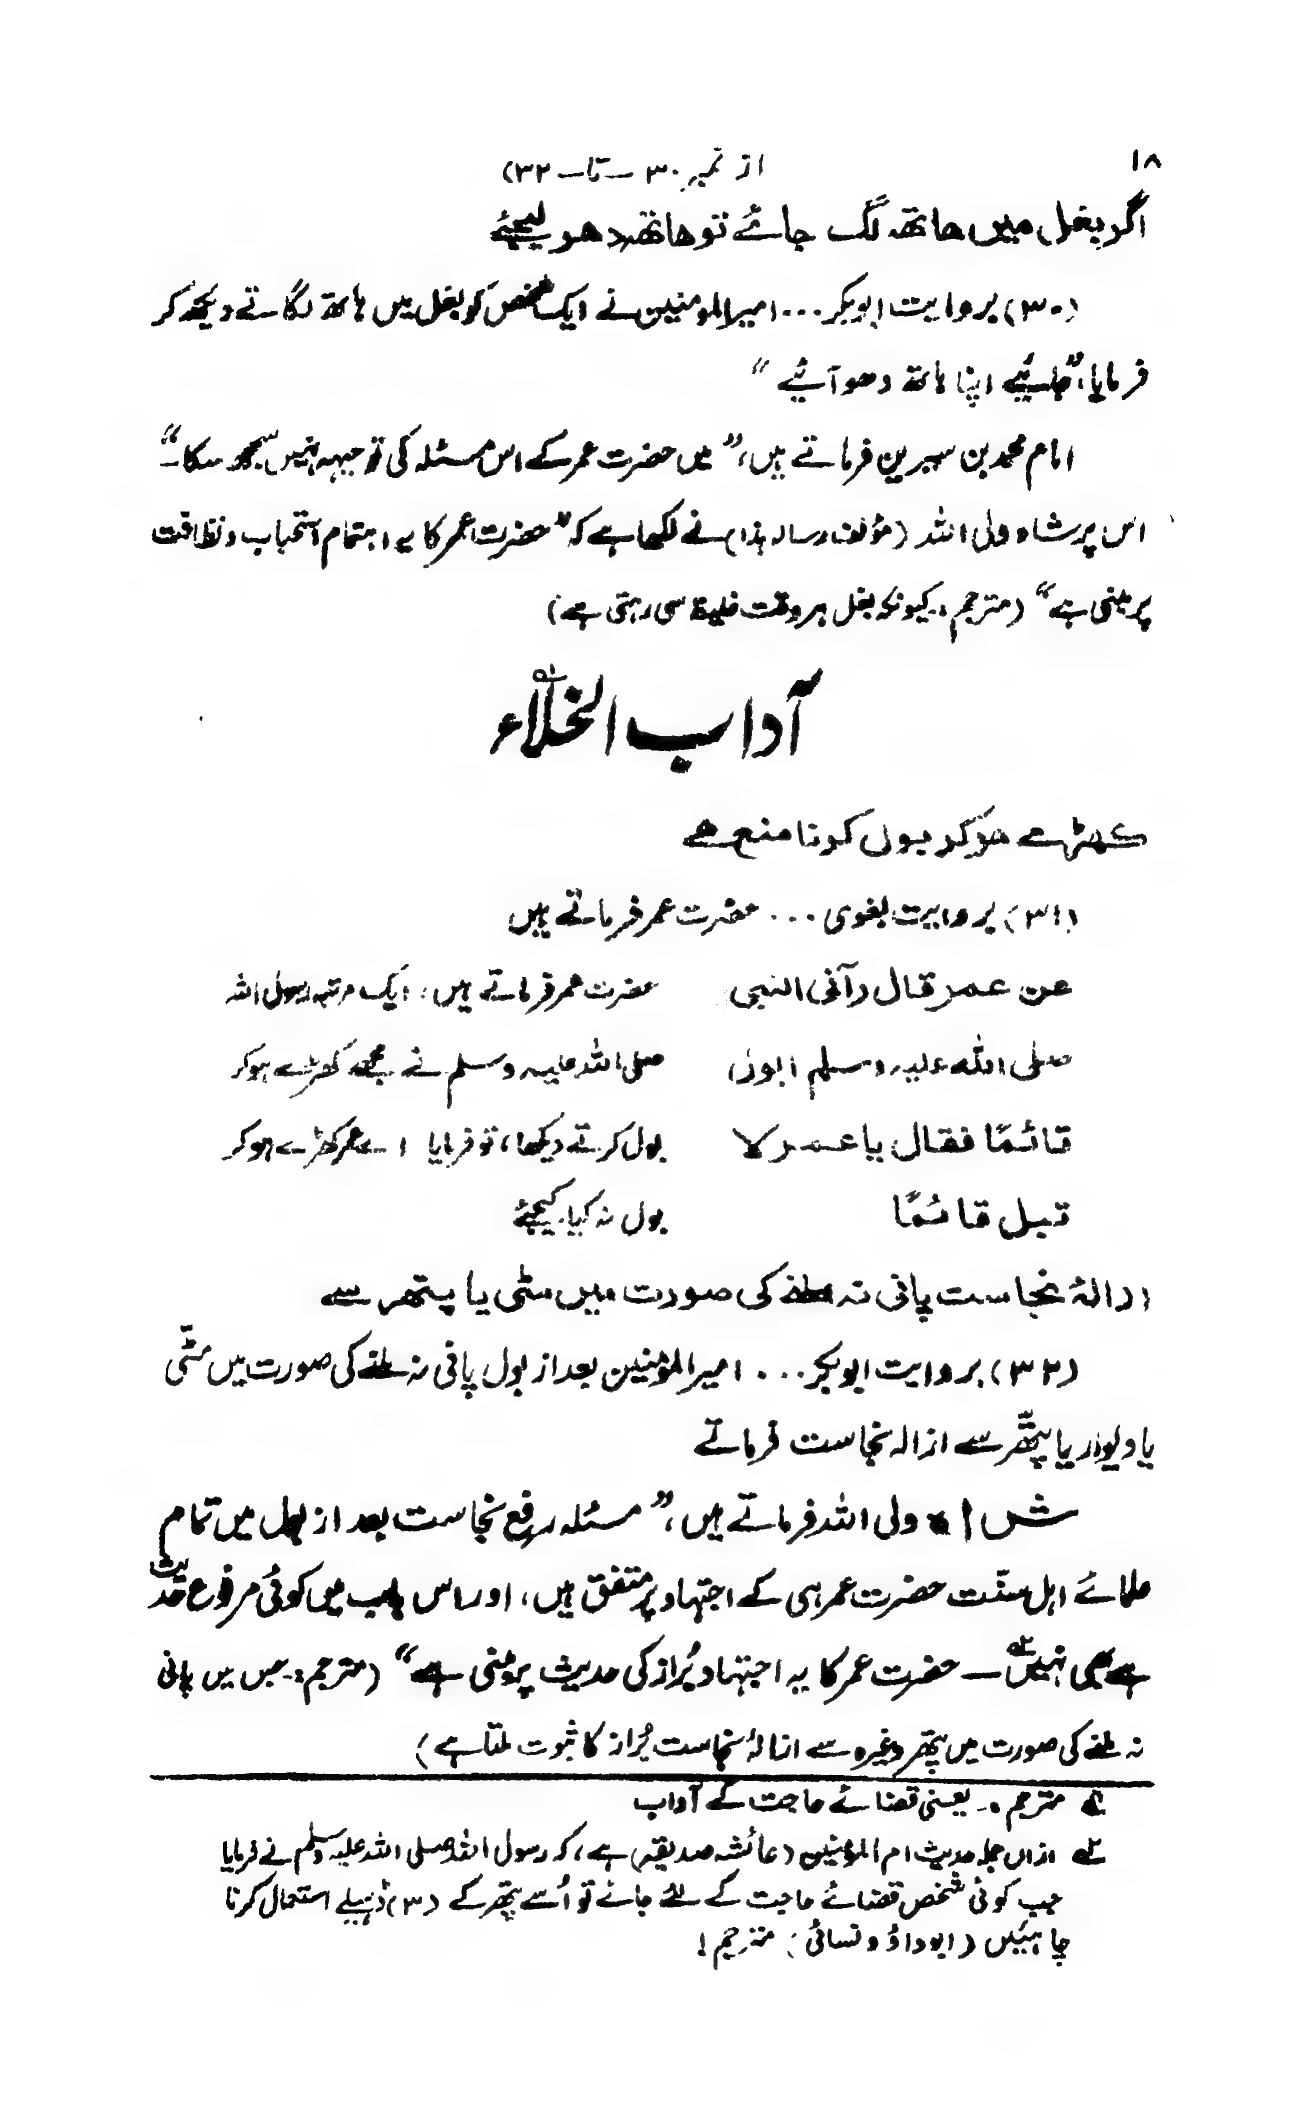 ۱۸
از نمبر ۳۰ – تا – ۳۲)
اگر بغل میں ہاتھ لگ جائے تو ہاتھ دھو لیجئے
(۳۰) بروایت ابوبکر ... امیرالمومنین نے ایک شخص کو بغل میں ہاتھ لگاتے دیکھ کر
فرمایا، "جائیے اپنا ہاتھ دھو آئیے"
امام محمد بن سیرین فرماتے ہیں، "میں حضرت عمر کے اس مسئلہ کی توجیہہ نہیں سمجھ سکا"۔
اس پر شاہ ولی اللہ (مؤلف رسالہ ہذا) نے لکھا ہے کہ "حضرت عمر کا یہ اہتمام استحباب و نظافت
پر مبنی ہے" (مترجم:۔ کیونکہ بغل ہر وقت غلیظ سی رہتی ہے)
آداب الخلاء ۱ہ
کھڑے ہو کر بول کرنا منع ہے
(۳۱) بروایت بغوی ... حضرت عمر فرماتے ہیں
عن عمر قال رآنی النبی حضرت عمر فرماتے ہیں، ایک مرتبہ رسول اللہ
صلی اللہ علیہ وسلم ابول صلی اللہ علیہ وسلم نے مجھے کھڑے ہو کر
قائمًا فقال یا عمر لا بول کرتے دیکھا، تو فرمایا اے عمر کھڑے ہو کر
تبل قائمًا بول نہ کیا کیجئے
ازالۂ نجاست پانی نہ ملنے کی صورت میں مٹی یا پتھر سے
(۳۲) بروایت ابوبکر ... امیرالمؤمنین بعد از بول پانی نہ ملنے کی صورت میں مٹی
یا دیوار یا پتھر سے ازالہ نجاست فرماتے
ش ا ولی اللہ فرماتے ہیں، "مسئلہ رفع نجاست بعد از بول میں تمام
علمائے اہل سنّت حضرت عمر ہی کے اجتہاد پر متفق ہیں، اور اس باب میں کوئی مرفوع حدیث
ہے بھی نہیں ۲ہ — حضرت عمر کا یہ اجتہاد بُراز کی حدیث پر مبنی ہے" (مترجم:۔ جس میں پانی
نہ ملنے کی صورت میں پتھر وغیرہ سے ازالۂ نجاست بُراز کا ثبوت ملتا ہے)
۱ہ مترجم:۔ یعنی قضائے حاجت کے آداب
۲ہ ازاں جملہ حدیث ام المؤمنین (عائشہ صدیقہ) ہے، کہ رسول اللہ صلی اللہ علیہ وسلم نے فرمایا
جب کوئی شخص قضائے حاجت کے لئے جائے تو اُسے پتھر کے (۳) ڈھیلے استعمال کرنا
چاہئیں (ابوداؤد و نسائی) مترجم!